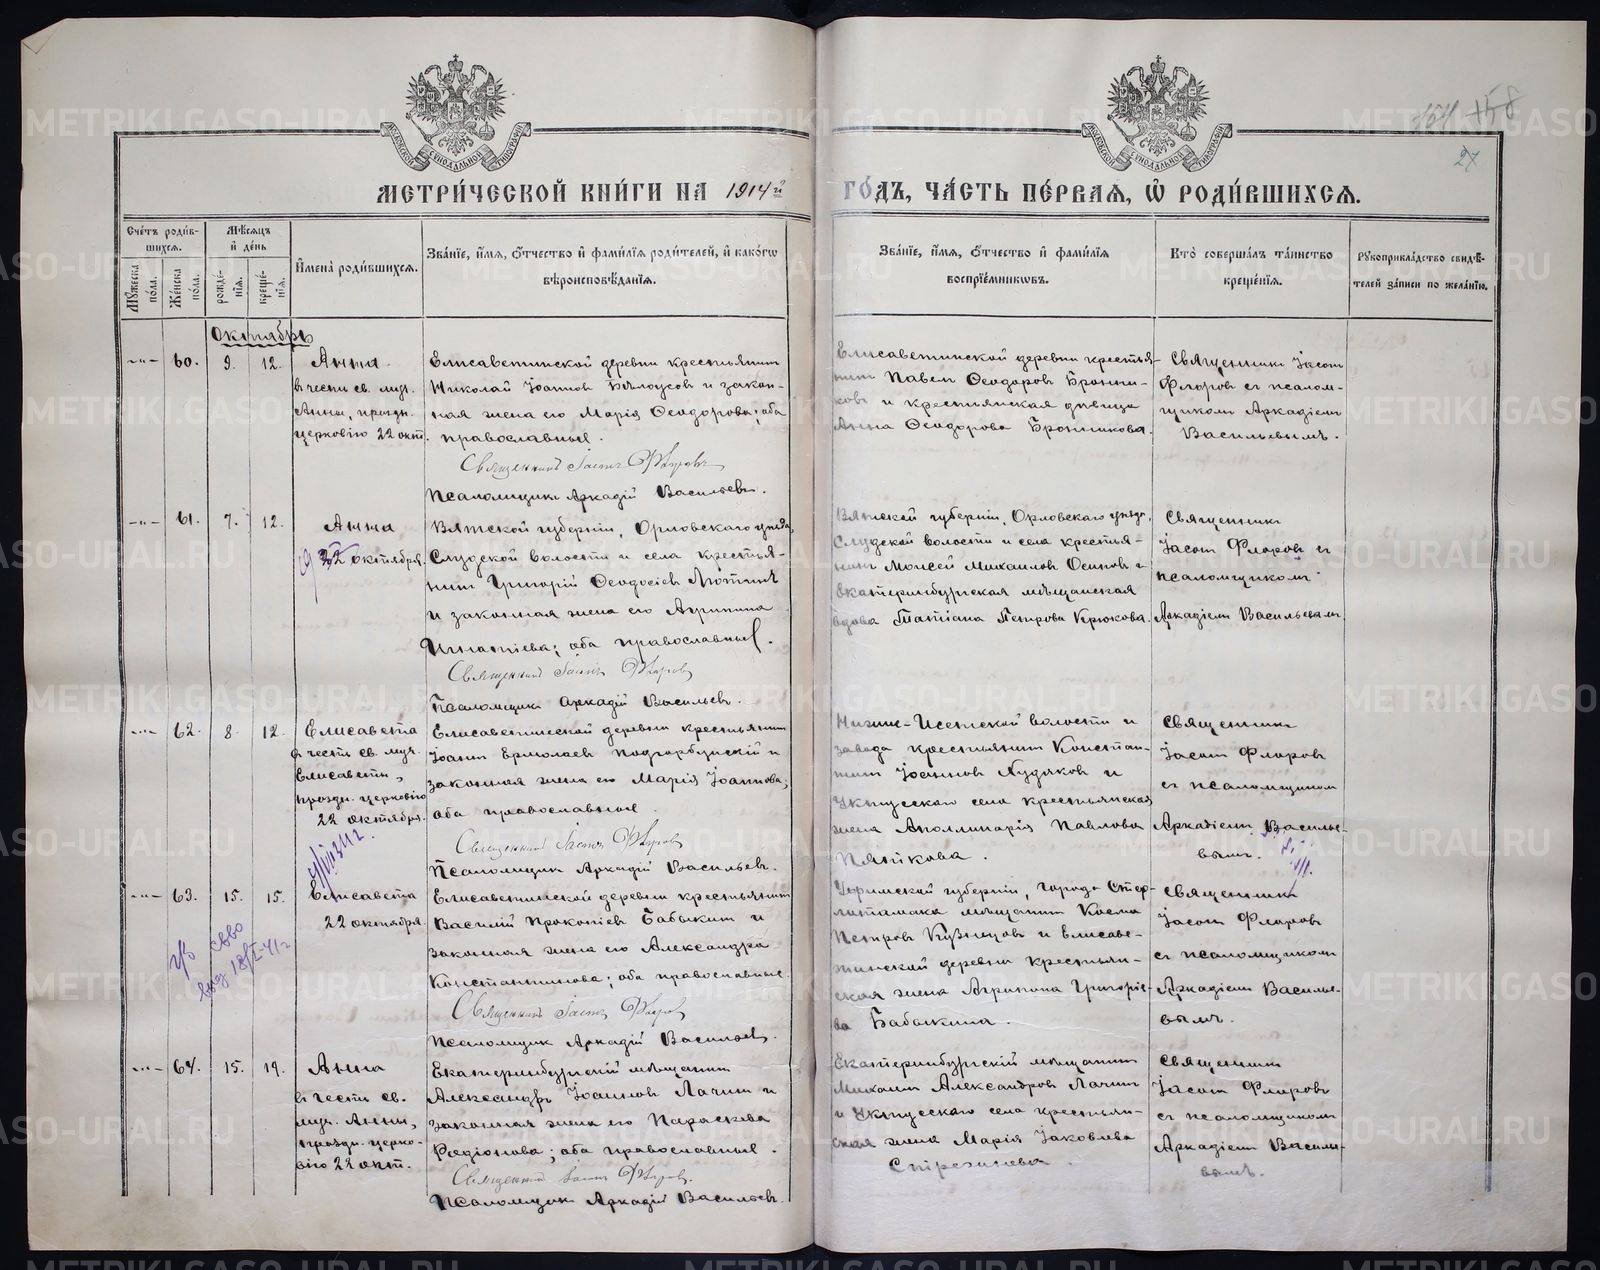 МЕТРИ́ЧЕСКОЙ КНИ́ГИ НА 1914й ГО́ДЪ, ЧА́СТЬ ПЕ́РВАЯ, Ѡ҆ РОДИ́ВШИХСЯ.
27
Сче́тъ роди́в-
шихся.
Мѣсяцъ
и де́нь
Мꙋ́жеска по́ла.
Же́нска по́ла.
рожде́-
нїя.
креще́-
нїя.
И҆мена̀ роди́вшихся.
Зва́нїе, и҆́мя, ѻ҆́тчество и҆ фами́лїя роди́телей, и҆ како́гѡ
вѣроисповѣ́данїя.
Зва́нїе, и҆́мя, ѻ҆́тчество и҆ фами́лїя
воспрїе́мникѡвъ.
Кто̀ соверша́лъ та́инство
креще́нїя.
Рꙋкоприкла́дство свидѣ́-
телей за́писи по жела́нїю.
Октябрь
60. 9. 12.
Анна
в честь св. муч.
Анны, праздн.
церковію 22 окт.
Елисаветинской деревни крестьянин
Николай Іоаннов Бѣлоусов и закон-
ная жена его Марія Ѳеодорова; оба
православные.
Священникъ Іасонъ Флоровъ
Псаломщикъ Аркадій Васильевъ.
Елисаветинской деревни крестья-
нин Павел Ѳеодоров Бронни-
ков и крестьянская дѣвица
Анна Ѳеодорова Бронникова.
Священник Іасон
Флоров съ псалом-
щиком Аркадіем
Васильевымъ.
61. 7. 12.
Анна
22 октября.
Вятской губерніи, Орловскаго уѣзда,
Слудской волости и села крестья-
нин Григорій Ѳеодосіев Лютинъ
и законная жена его Агрипина
Игнатіева; оба православные.
Священникъ Іасонъ Флоров
Псаломщик Аркадій Васильевъ.
Вятской губерніи, Орловскаго уѣзда,
Слудской волости и села крестья-
нин Моисей Михаилов Осипов и
Екатеринбургская мѣщанская
вдова Татіана Петрова Крюкова.
Священник
Іасон Флоров съ
псаломщиком
Аркадіем Васильевым.
62. 8. 12.
Елисавета
в честь св. муч.
Елисаветы,
праздн. церковію
22 октября.
Елисаветинской деревни крестьянин
Іоанн Ермолаев Подгорбунскій и
законная жена его Марія Іоаннова;
оба православные.
Священникъ Іасонъ Флоров
Псаломщик Аркадій Васильевъ.
Нижне-Исетской волости и
завода крестьянин Констан-
тин Іоаннов Худяков и
Уктусскаго села крестьянская
жена Аполлинарія Павлова
Пяткова.
Священник
Іасон Флоров
съ псаломщиком
Аркадіем Василье-
вымъ.
63. 15. 15.
Елисавета
22 октября.
Елисаветинской деревни крестьянин
Василій Прокопіев Бабыкин и
законная жена его Александра
Константинова; оба православные.
Священникъ Іасонъ Флоров
Псаломщик Аркадій Васильевъ.
Уфимской губерніи, города Стер-
литамака мѣщанин Косма
Петров Кузнецов и Елисаве-
тинской деревни крестьян-
ская жена Агрипина Григоріе-
ва Бабыкина.
Священник
Іасон Флоров
съ псаломщиком
Аркадіем Василье-
вымъ.
64. 15. 19.
Анна
в честь св.
муч. Анны,
праздн. церко-
вію 22 окт.
Екатеринбургскій мѣщанин
Александръ Іоаннов Лачин и
законная жена его Параскева
Родіонова; оба православные.
Священникъ Іасонъ Флоров.
Псаломщик Аркадій Васильевъ.
Екатеринбургскій мѣщанин
Михаил Александров Лачин
и Уктусскаго села крестьян-
ская жена Марія Іаковлева
Священник
Іасон Флоров
съ псаломщиком
Аркадіем Василь-
вымъ.
METRIKI.GASO-URAL.RU